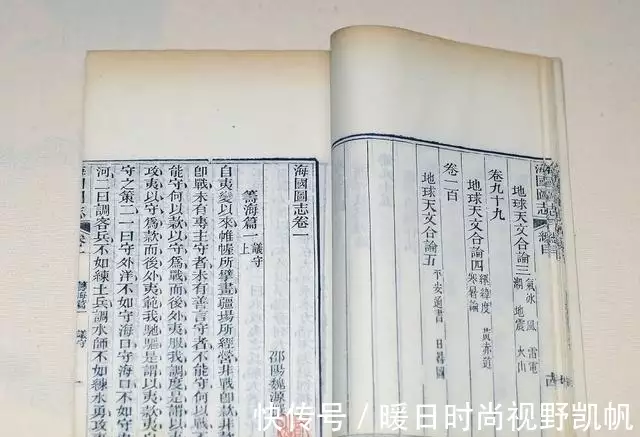 海國圖志
總目
地球天文合論三 氣冰 風 雷電
潮 地震 火山
卷九十九
地球天文合論四 經緯度 黃赤道
寒暑論
卷一百
地球天文合論五 平安通書 日晷圖
海國圖志卷一
邵陽魏源
籌海篇一 議守上
自夷變以來帷幄所擘畫疆場所經營非戰卽款非
卽戰未有專主守者未有善言守者不能守何以戰
能守何以款以守爲戰而後外夷服我調度是謂以
攻夷以守爲款而後外夷範我馳驅是謂以夷
守之策二一曰守外洋不如守海口守海口不如守
河二曰調客兵不如練土兵調水師不如練水勇攻
籌海篇一 議守
快传号／暖日时尚视野凯帆